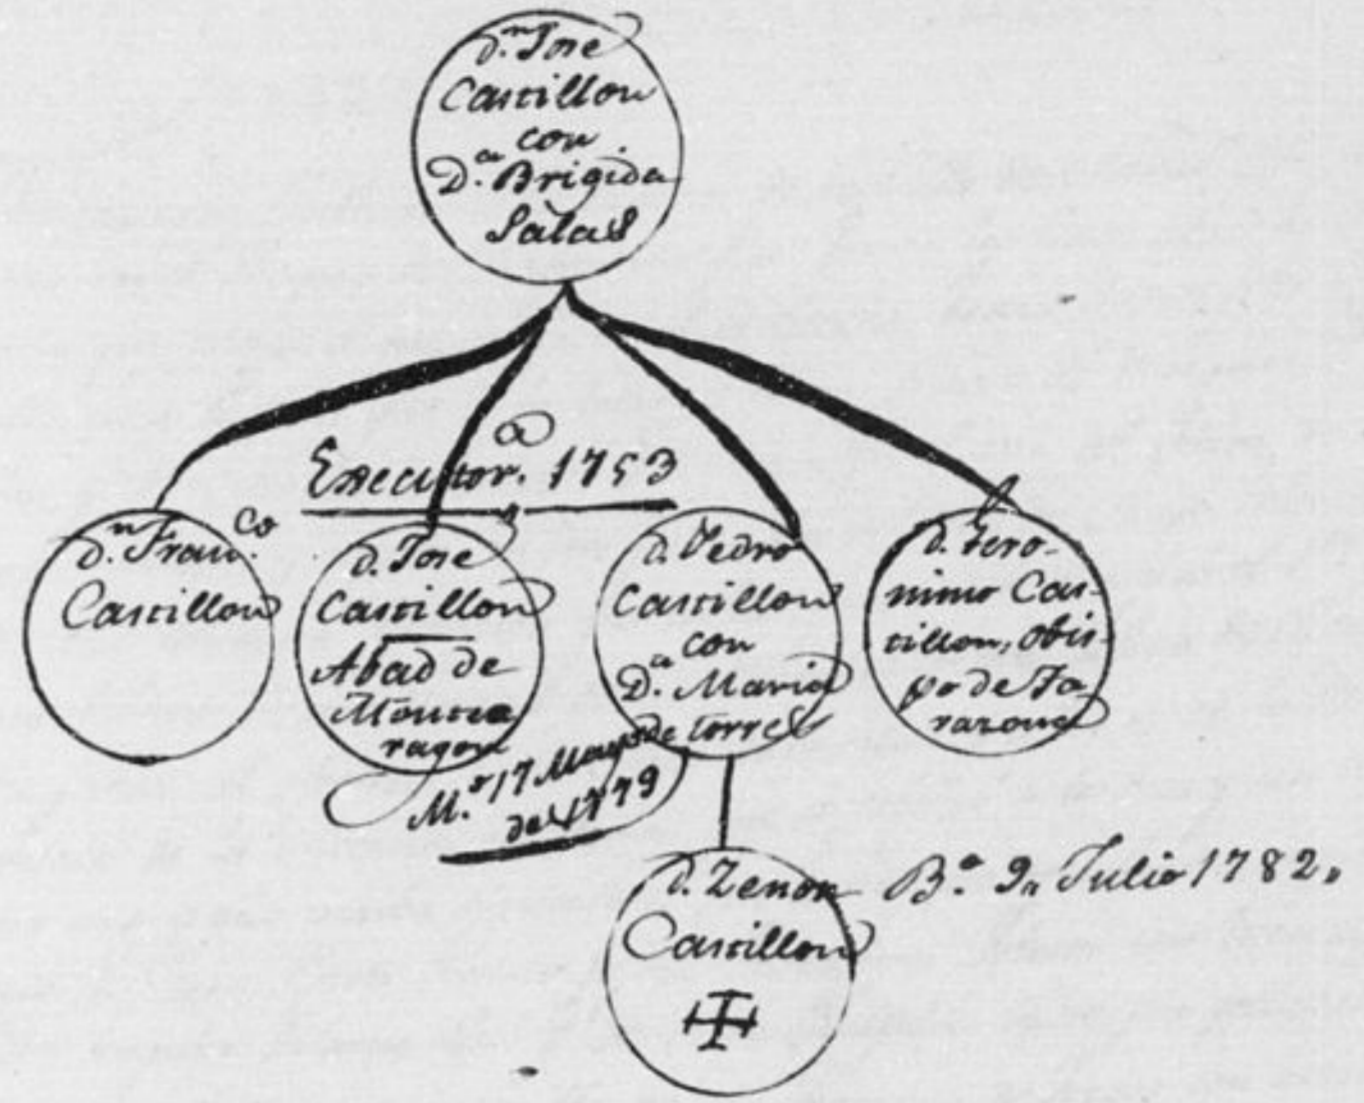 d.ⁿ Jose
Castillon
con
D.ª Brigida
Salas
Executor.ª 1753
d.ⁿ Fran.co
Castillon
d. Jose
Castillon
Abad de
Montea
ragon
d. Pedro
Castillon
con
D.ª Maria
de Torres
d. Gero-
nimo Cas-
tillon, obis-
po de Ta
razona
M.º 17 Mayo
de 1779
d. Zenon
Castillon
B.º 9 Julio 1782